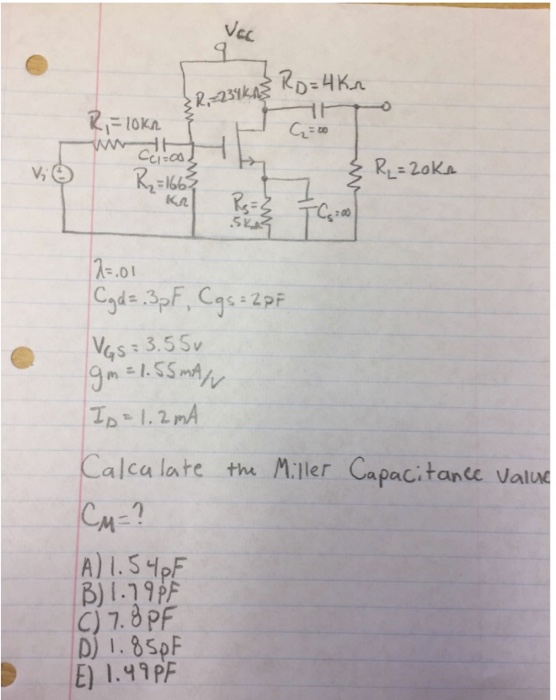 Vcc
R₁=234KΩ
R_D=4KΩ
R_i=10KΩ
C_C1=∞
C_2=∞
V_i
R₂=166
KΩ
R_S=
.5KΩ
C_s=∞
R_L=20KΩ
λ=.01
Cgd=.3pF, Cgs=2pF
V_GS=3.55v
gm=1.55mA/V
I_D=1.2mA
Calculate the Miller Capacitance value
C_M=?
A) 1.54pF
B) 1.79pF
C) 7.8pF
D) 1.85pF
E) 1.49pF